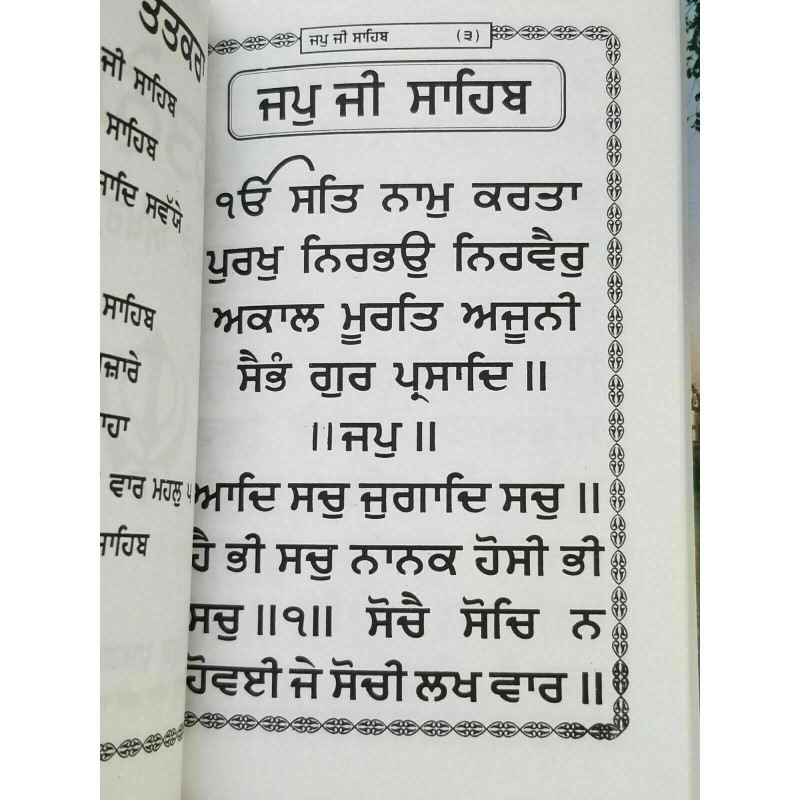 ਤਤਕਰਾ
ਜੀ ਸਾਹਿਬ
ਸਾਹਿਬ
ਸਵੱਯੇ
ਸਾਹਿਬ
ਵਾਰ ਮਹਲੁ ੫
ਸਾਹਿਬ
ਜਪੁ ਜੀ ਸਾਹਿਬ (੩)
ਜਪੁ ਜੀ ਸਾਹਿਬ
ੴ ਸਤਿ ਨਾਮੁ ਕਰਤਾ
ਪੁਰਖੁ ਨਿਰਭਉ ਨਿਰਵੈਰੁ
ਅਕਾਲ ਮੂਰਤਿ ਅਜੂਨੀ
ਸੈਭੰ ਗੁਰ ਪ੍ਰਸਾਦਿ ॥
॥ ਜਪੁ ॥
ਆਦਿ ਸਚੁ ਜੁਗਾਦਿ ਸਚੁ ॥
ਹੈ ਭੀ ਸਚੁ ਨਾਨਕ ਹੋਸੀ ਭੀ
ਸਚੁ ॥੧॥ ਸੋਚੈ ਸੋਚਿ ਨ
ਹੋਵਈ ਜੇ ਸੋਚੀ ਲਖ ਵਾਰ ॥